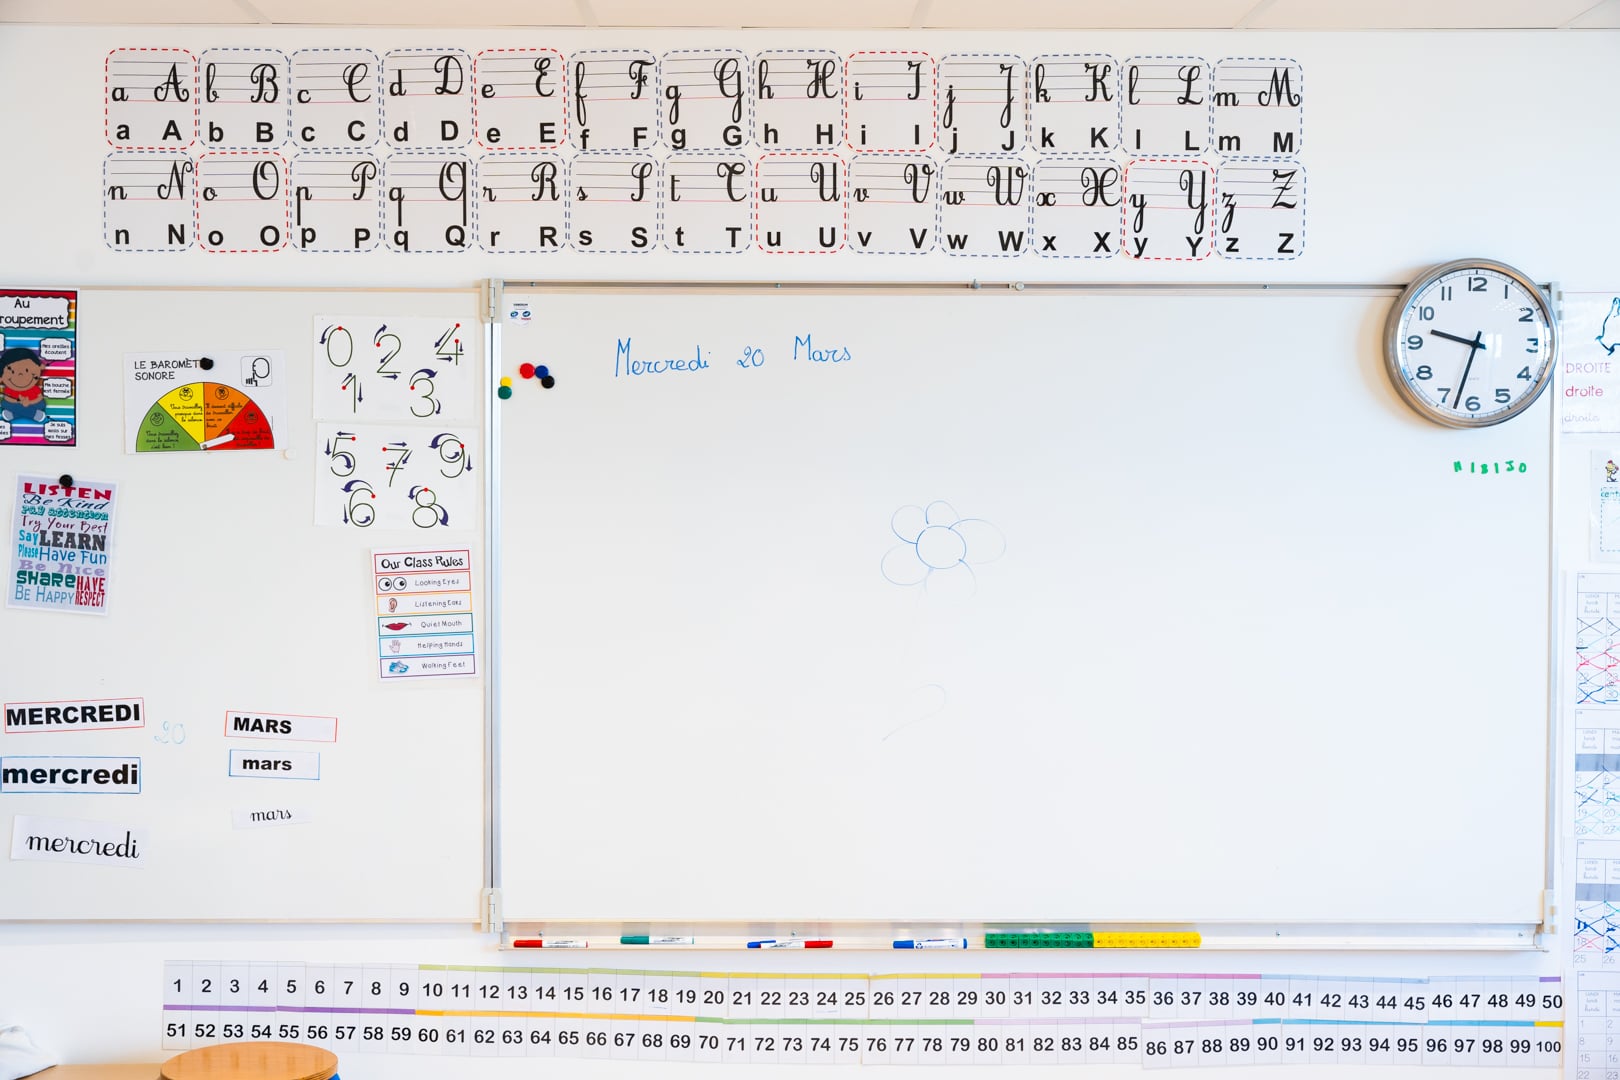 a A b B c C d D e E f F g G h H i I j J k K l L m M
a A b B c C d D e E f F g G h H i I j J k K l L m M
n N o O p P q Q r R s S t T u U v V w W x X y Y z Z
n N o O p P q Q r R s S t T u U v V w W x X y Y z Z
Au
roupement
Mes oreilles
écoutent
Ma bouche
est fermée
Je suis
assis sur
mes fesses
LE BAROMÈT
SONORE
0 2 4
1 3
5 7 9
6 8
LISTEN
Be Kind
pay attention
Try Your Best
Say LEARN
Please Have Fun
Be Nice
SHARE HAVE
BE HAPPY RESPECT
Our Class Rules
Looking Eyes
Listening Ears
Quiet Mouth
Helping Hands
Walking Feet
MERCREDI 20 MARS
mercredi mars
mercredi mars
Mercredi 20 Mars
12 1 2 3 4 5 6 7 8 9 10 11
DROITE
droite
droite
1 2 3 4 5 6 7 8 9 10 11 12 13 14 15 16 17 18 19 20 21 22 23 24 25 26 27 28 29 30 31 32 33 34 35 36 37 38 39 40 41 42 43 44 45 46 47 48 49 50
51 52 53 54 55 56 57 58 59 60 61 62 63 64 65 66 67 68 69 70 71 72 73 74 75 76 77 78 79 80 81 82 83 84 85 86 87 88 89 90 91 92 93 94 95 96 97 98 99 100